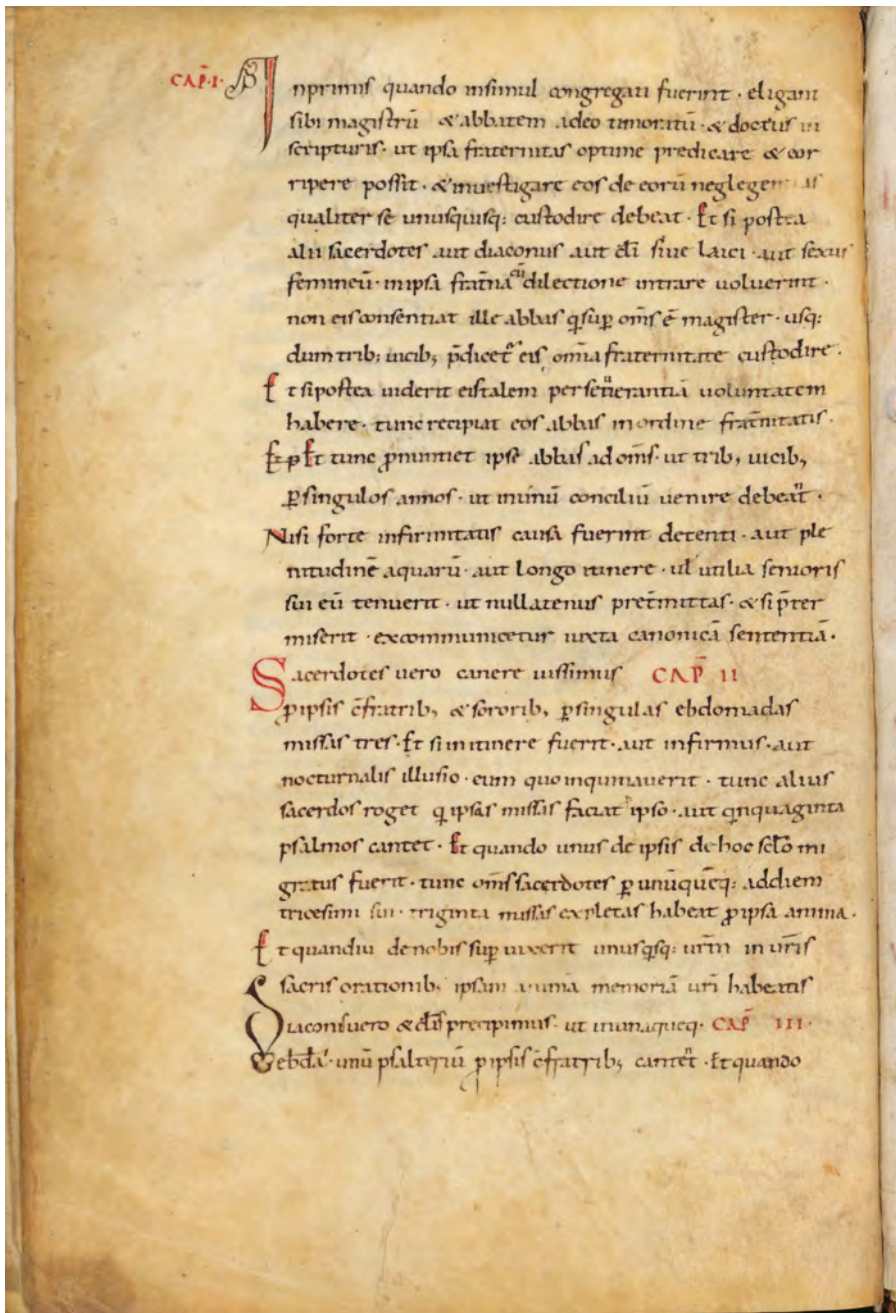 CAP̄·I· Inprimis quando insimul congregati fuerint · eligant
sibi magistrū & abbatem adeo timoritū · & doctus in
scripturis · ut ipsa fraternitas optime predicare & cor
ripere possit · & inuestigare eos de eorū neglegentias
qualiter se unusquisq: custodire debeat · Et si postea
alii sacerdotes aut diaconus aut cl̄i siue laici · aut sexus
femineū · in ipsa frat̄na cū dilectione intrare uoluerint ·
non eis consentiat ille abbas q̄ sup̄ om̄s ē magister · usq:
dum trib: uicib, p̄dicet̄ eis om̄ia fraternitate custodire ·
Et si postea uiderit eis talem perseuerantiā uoluntatem
habere · tunc recipiat eos abbas in ordine frat̄nitatis ·
Et tunc p̄nuntiet ipse abbas ad om̄s · ut trib, uicib,
p̄ singulos annos · ut in unū conciliū uenire debeat̄ ·
Nisi forte infirmitatis causa fuerint detenti · aut ple
nitudinē aquarū · aut longo itinere · ul̄ utilia senioris
sui eū tenuerit · ut nullatenus pret̄mittas · & si p̄ter
miserit · excommunicetur iuxta canonicā sententiā ·
Sacerdotes uero canere iussimus CAP̄ II
p̄ ipsis c̄fratrib, & sororib, p̄ singulas ebdomadas
missas tres · Et si in itinere fuerit · aut infirmus · aut
nocturnalis illusio · eum quoinquinauerit · tunc alius
sacerdos roget q̄ ipsas missas faciat p̄ ipso · aut q̄nquaginta
psalmos cantet · Et quando unus de ipsis de hoc sc̄lo mi
gratus fuerit · tunc om̄s sacerdotes p̄ unūquēq: ad diem
tricesimi sui · triginta missas expletas habeat p̄ ipsa anima ·
Et quandiu de nobis sup̄ uixerit unusq̄sq: ur̄m in ur̄is
sacris orationib, ipsam animā memoriā ur̄i habeatis
Diacons uero & cl̄is precipimus · ut in unaqueq · CAP̄ III ·
ebd̄a · unū psalteriū p̄ ipsis c̄fratrib, cantet̄ · Et quando